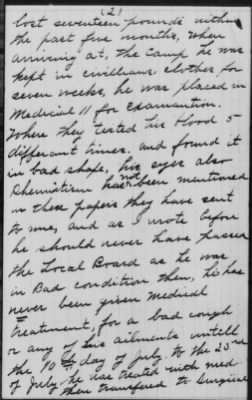 (2)
lost seventeen pounds within
the past five months, when
arriving at, the Camp he was
kept in civillians. clothes for
seven weeks, he was placed in
Medical 11 for Examination.
Where they tested his blood 5
different times. and found it
in bad shape, his eyes also
Rhemistism has not been mentioned
in these papers they have sent
to me, and as I wrote before
he should never have passed
the Local Board as he was
in Bad condition then, he has
never been given Medical
treatment, for a bad cough
or any of his ailments untill
the 10th day of July to the 23rd
of July he was treated with med
then transfered to Surgical